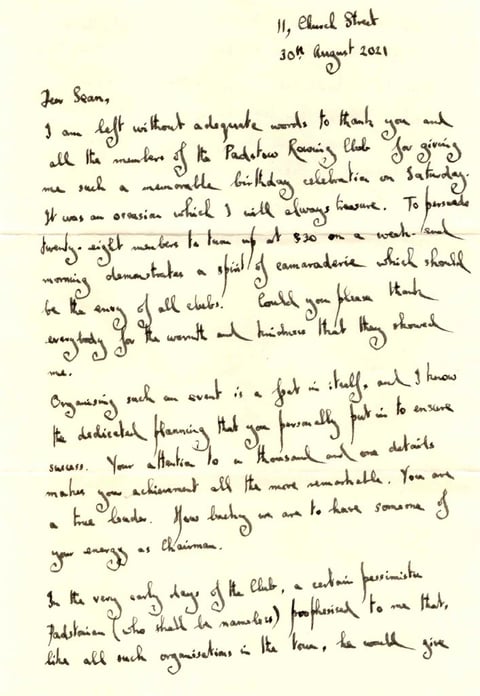 11, Church Street
30th August 2021
Dear Sean,
I am left without adequate words to thank you and
all the members of the Padstow Rowing Club for giving
me such a memorable birthday celebration on Saturday.
It was an occasion which I will always treasure. To persuade
twenty-eight members to turn up at 830 on a week-end
morning demonstrates a spirit of camaraderie which should
be the envy of all clubs. Could you please thank
everybody for the warmth and kindness that they showed
me.
Organising such an event is a feat in itself, and I know
the dedicated planning that you personally put in to ensure
success. Your attention to a thousand and one details
makes your achievement all the more remarkable. You are
a true leader. How lucky we are to have someone of
your energy as Chairman.
In the very early days of the Club, a certain pessimistic
Padstonian (who shall be nameless) prophesised to me that,
like all such organisations in the town, he would give